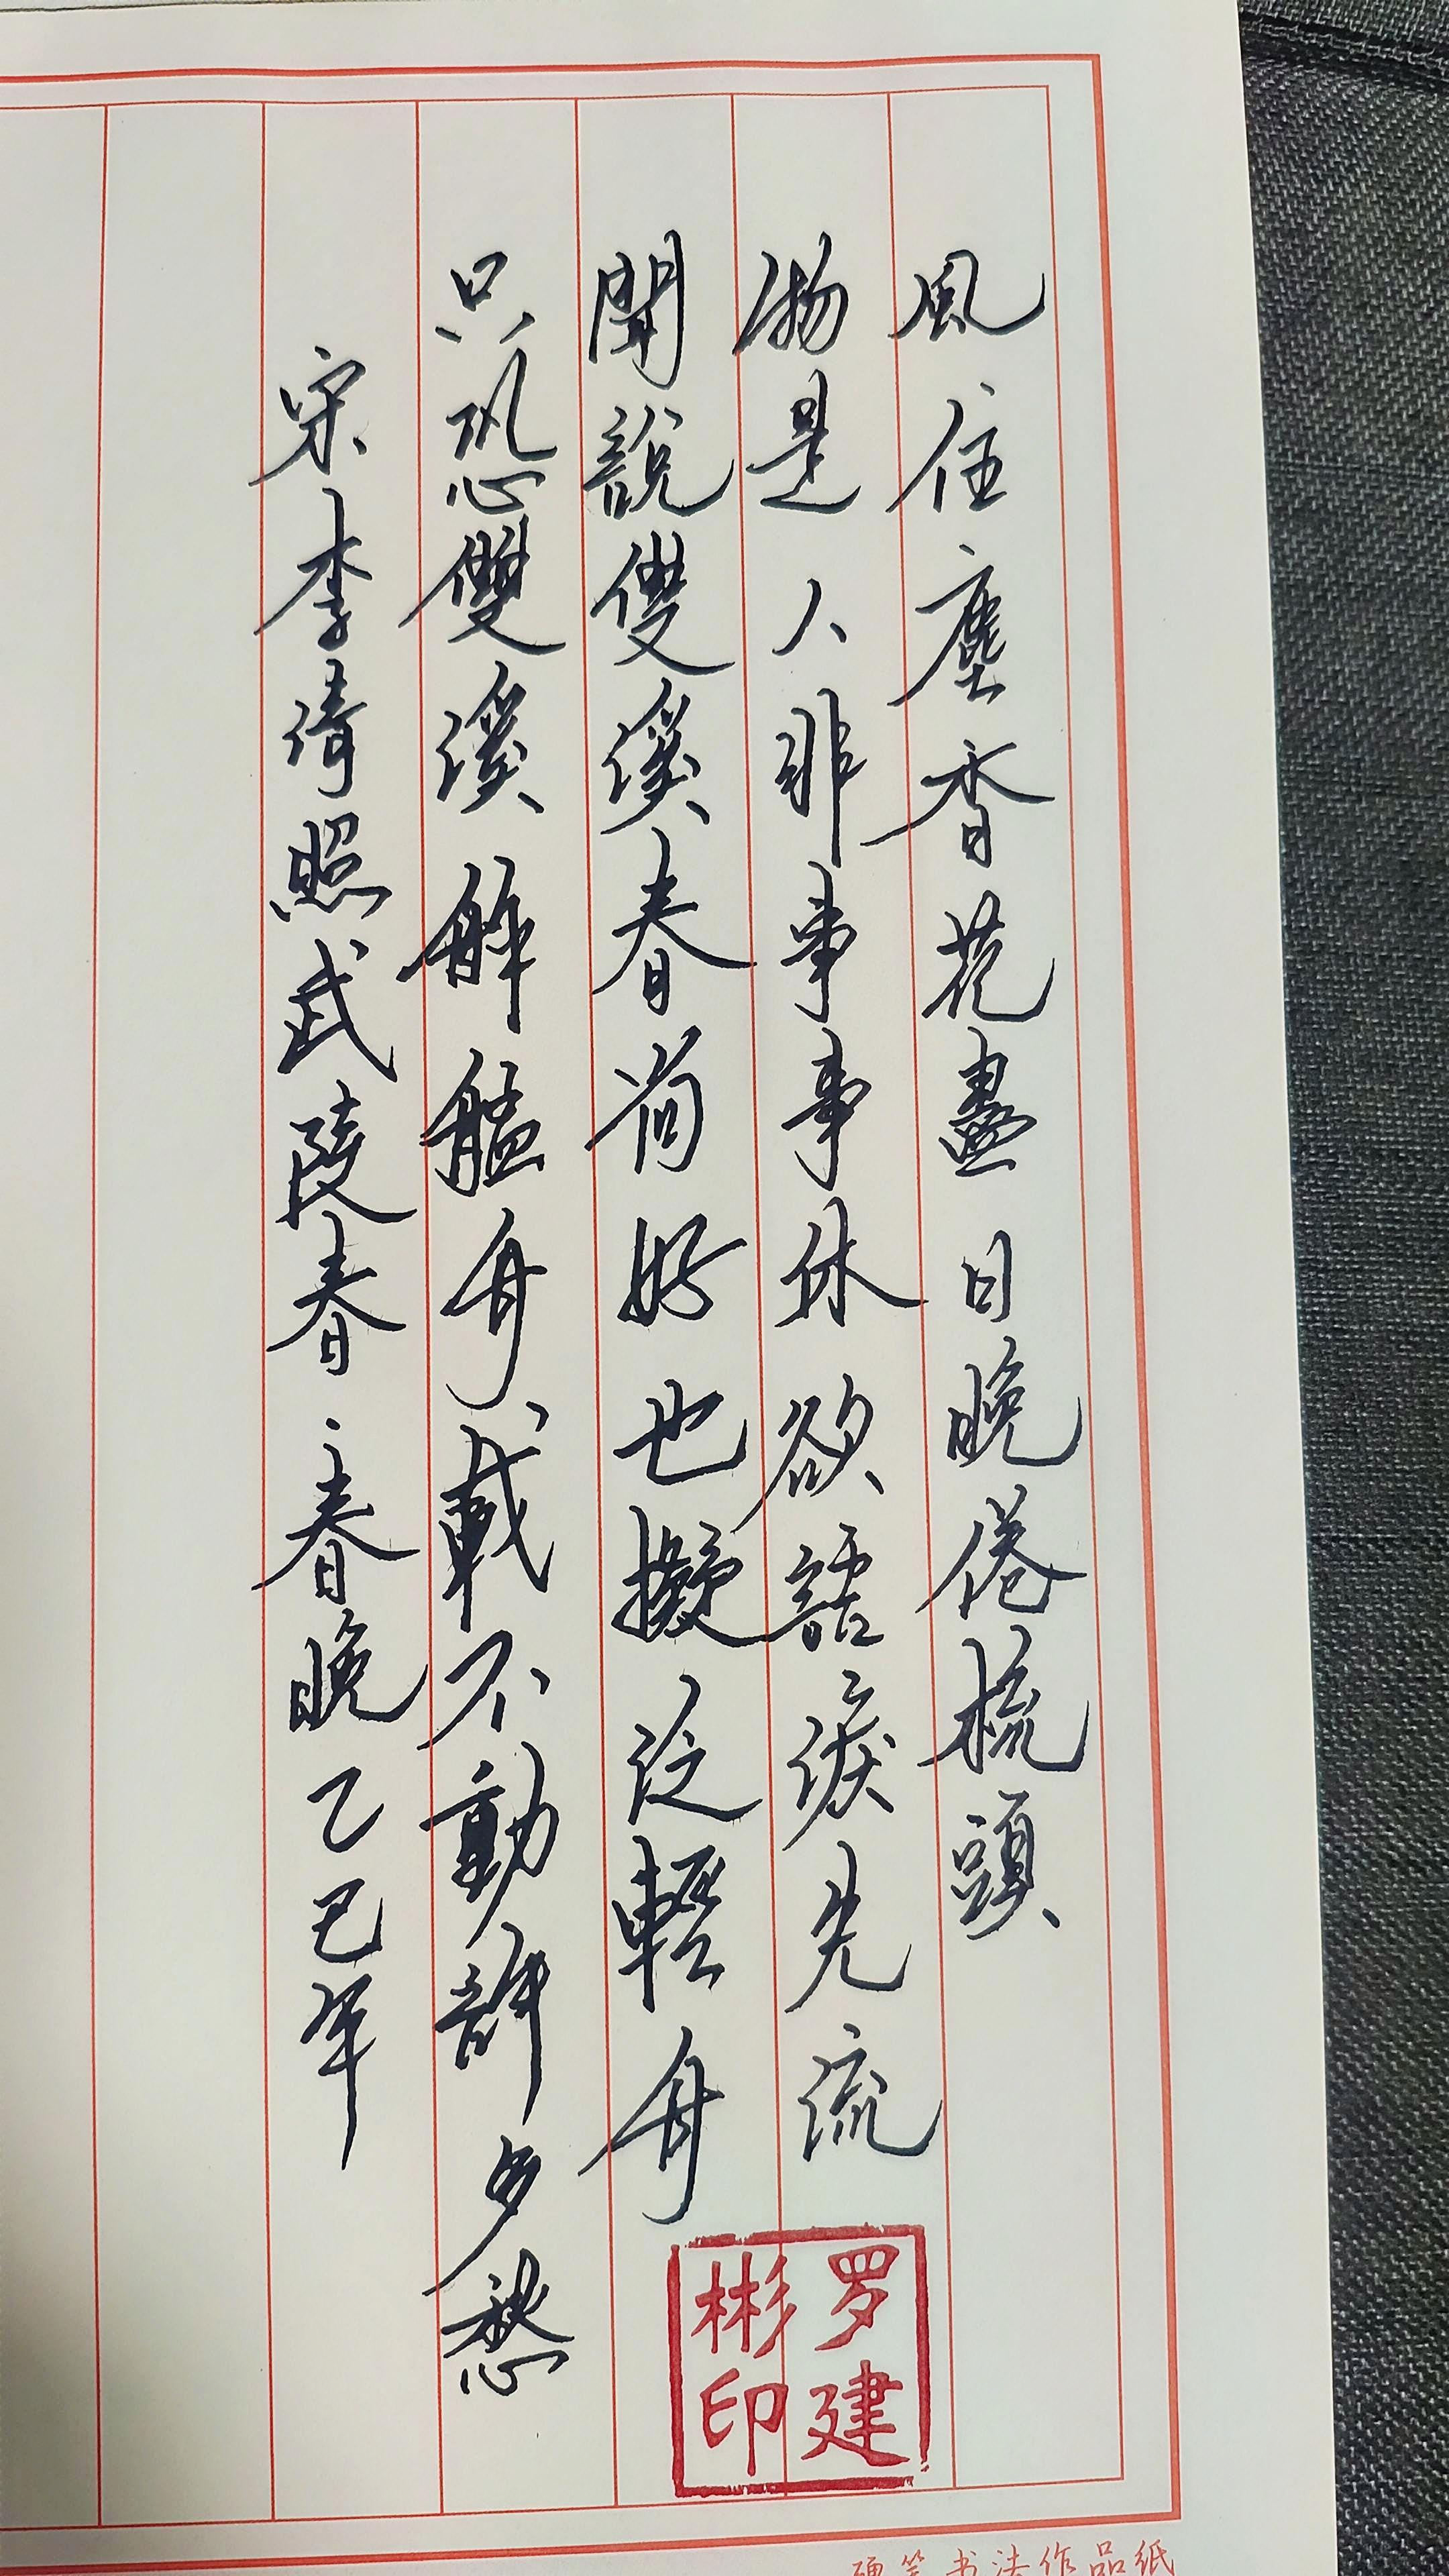 風住塵香花盡日晚倦梳頭
物是人非事事休欲語淚先流
聞說雙溪春尚好也擬泛輕舟
只恐雙溪舴艋舟載不動許多愁
宋李清照武陵春·春晚乙巳年
罗建
彬印
硬笔书法作品纸